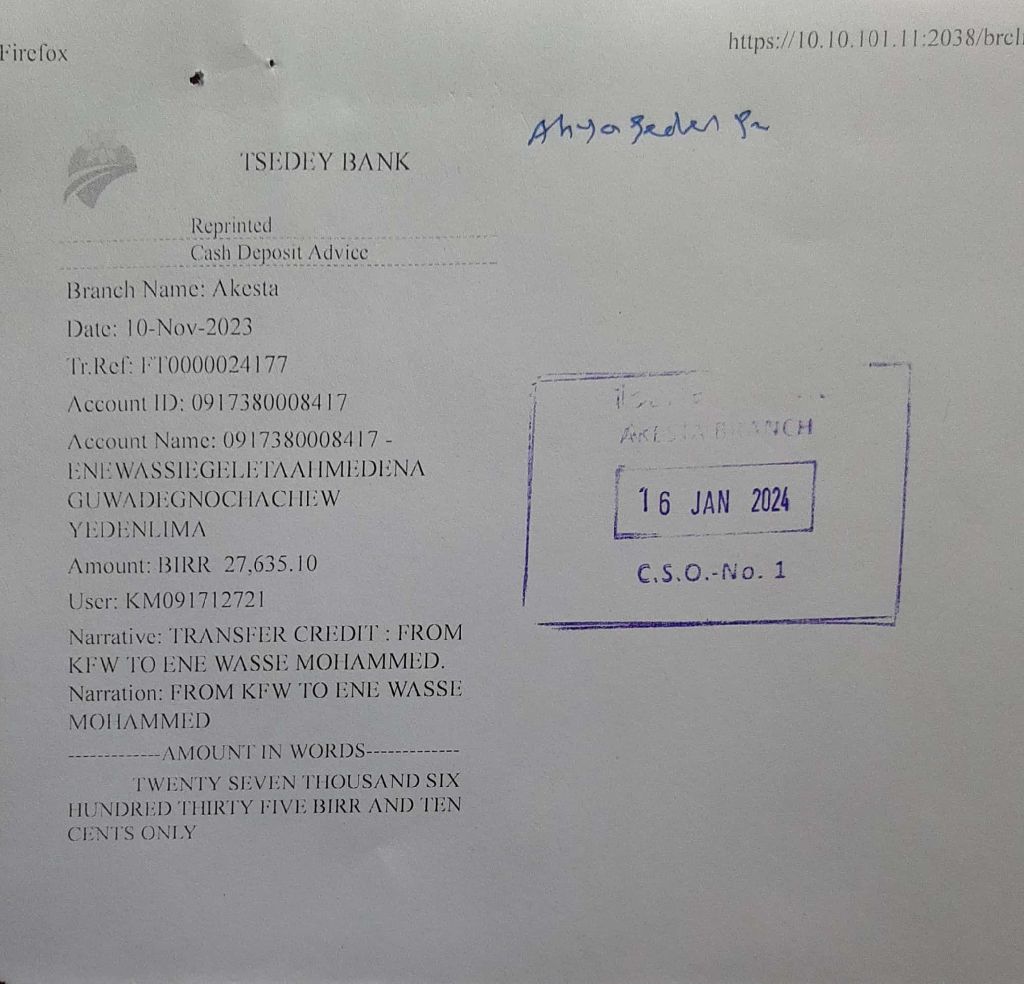 Firefox
https://10.10.101.11:2038/brcli
TSEDEY BANK
Reprinted
Cash Deposit Advice
Branch Name: Akesta
Date: 10-Nov-2023
Tr.Ref: FT0000024177
Account ID: 0917380008417
Account Name: 0917380008417 -
ENEWASSIEGELETAAHMEDENA
GUWADEGNOCHACHEW
YEDENLIMA
Amount: BIRR 27,635.10
User: KM091712721
Narrative: TRANSFER CREDIT : FROM
KFW TO ENE WASSE MOHAMMED.
Narration: FROM KFW TO ENE WASSE
MOHAMMED
-------------AMOUNT IN WORDS-------------
TWENTY SEVEN THOUSAND SIX
HUNDRED THIRTY FIVE BIRR AND TEN
CENTS ONLY
AKESTA BRANCH
16 JAN 2024
C.S.O.-No. 1